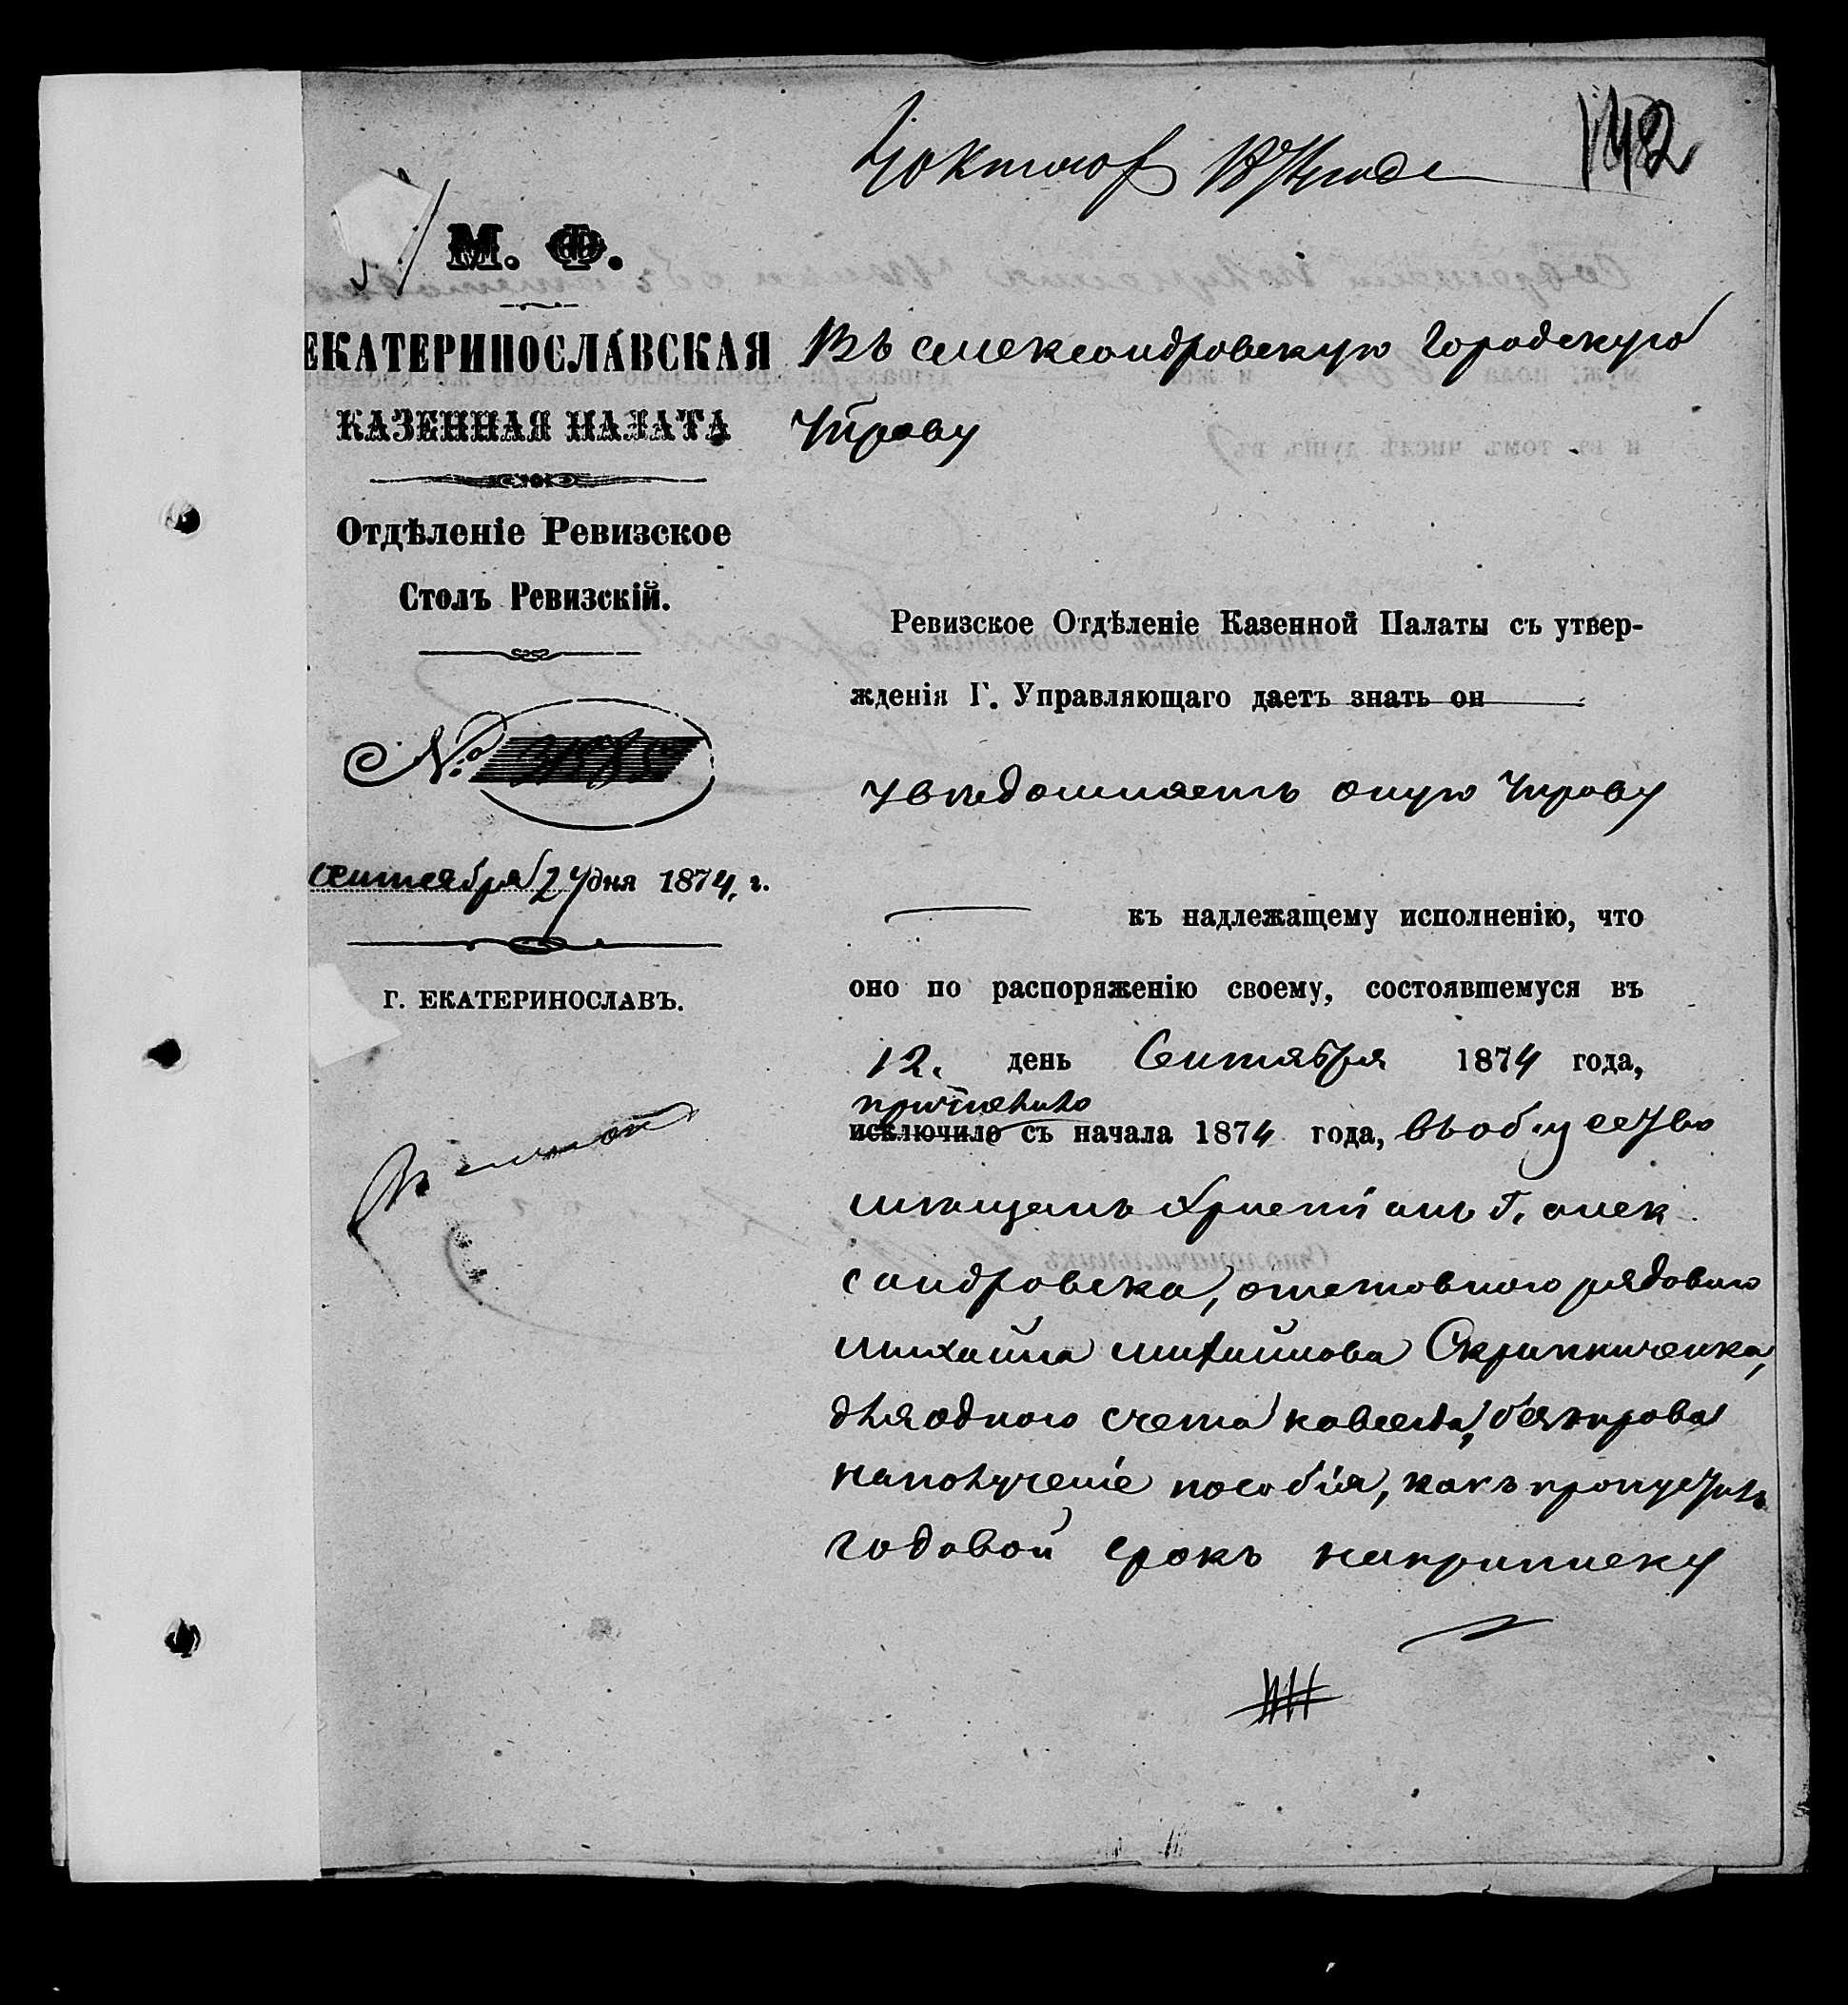 142
М. Ф.
ЕКАТЕРИНОСЛАВСКАЯ
КАЗЕННАЯ ПАЛАТА
Отдѣленіе Ревизское
Столъ Ревизскій.
№
Сентября 24 дня 1874 г.
Г. ЕКАТЕРИНОСЛАВЪ.
Въ Александровскую Городскую
Управу
Ревизское Отдѣленіе Казенной Палаты съ утвер-
жденія Г. Управляющаго даетъ знать он
увѣдомляетъ оную Управу
къ надлежащему исполненію, что
оно по распоряженію своему, состоявшемуся въ
12. день Сентября 1874 года,
причислило
исключило съ начала 1874 года, въ общество
мѣщанъ Христіанъ г. Алек
сандровска, отставного рядового
Михаила Михайлова Скрипниченка,
для одного счета навсегда, безъ права
на полученіе пособія, какъ пропустивъ
годовой срокъ на приписку